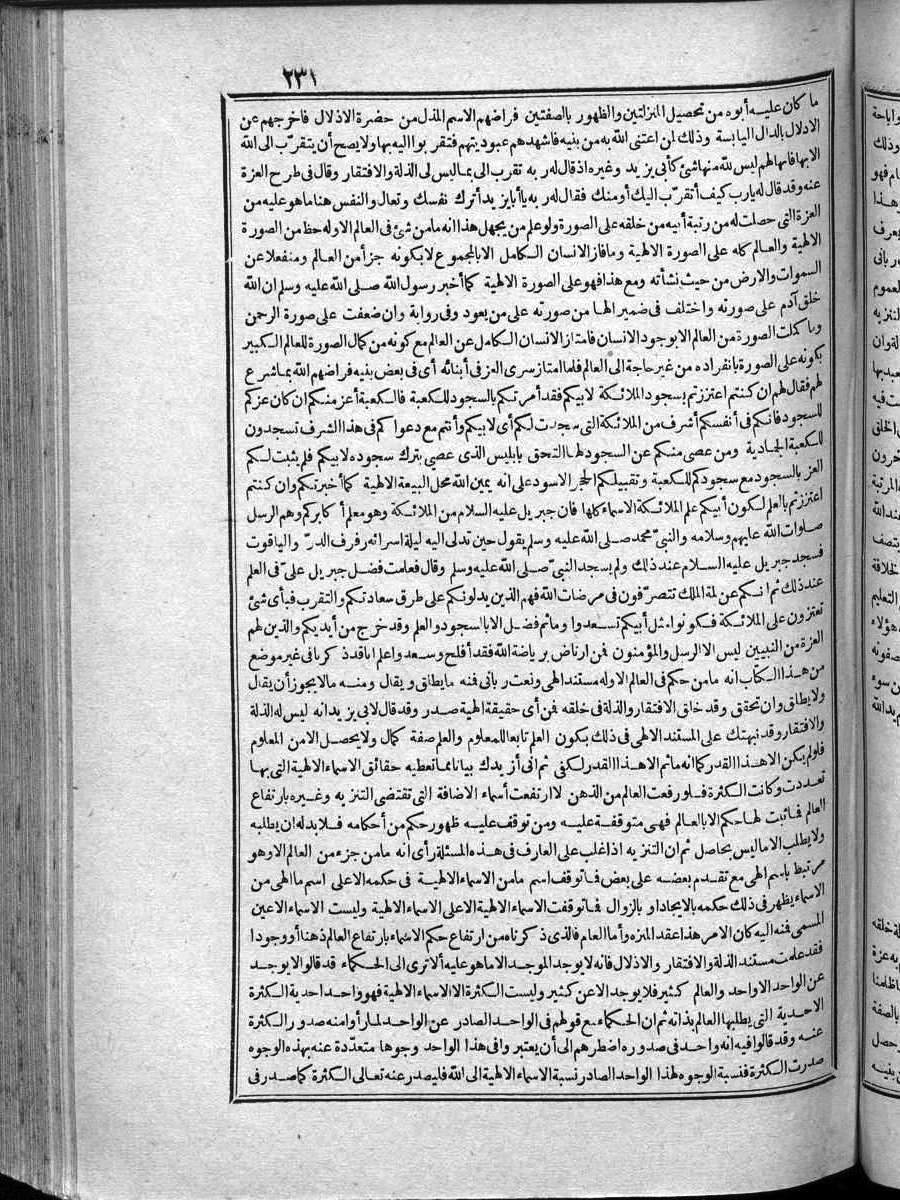 ٢٣١
ما كان عليه أبوه من تحصيل المنزلتين والظهور بالصفتين فراضهم الاسم المذل من حضرة الاذلال فاخرجهم عن
الادلال بالدال اليابسة وذلك لمن اعتنى الله به من بنيه فاشهدهم عبوديتهم فتقربوا اليه بها ولا يصح أن يتقرّب الى الله
الا بها فانها لهم ليس لله منها شئ كأبى يزيد وغيره اذ قال له ربه تقرب الى بما ليس لى الذلة والافتقار وقال فى طرح العزة
عنه وقد قال له يارب كيف أتقرّب اليك أو منك فقال له ربه يا أبا يزيد أترك نفسك وتعال والنفس هنا ما هو عليه من
العزة التى حصلت له من رتبة أبيه من خلقه على الصورة ولو علم من يجهل هذا انه ما من شئ فى العالم الا وله حظ من الصورة
الالهية والعالم كله على الصورة الالهية وما فاز الانسان الكامل الا بالمجموع لا بكونه جزأ من العالم ومنفعلا عن
السموات والارض من حيث نشأته ومع هذا فهو على الصورة الالهية كما أخبر رسول الله صلى الله عليه وسلم ان الله
خلق آدم على صورته واختلف فى ضمير الهاء من صورته على من يعود وفى رواية وان ضعفت على صورة الرحمن
وما كملت الصورة من العالم الا بوجود الانسان فامتاز الانسان الكامل عن العالم مع كونه من كمال الصورة للعالم الكبير
بكونه على الصورة بانفراده من غير حاجة الى العالم فلما امتاز سرى العز فى أبنائه أى فى بعض بنيه فراضهم الله بما شرع
لهم فقال لهم ان كنتم اعتززتم بسجود الملائكة لابيكم فقد أمرتكم بالسجود للكعبة فالكعبة أعز منكم ان كان عزكم
للسجود فانكم فى أنفسكم أشرف من الملائكة التى سجدت لكم أى لابيكم وأنتم مع دعواكم فى هذا الشرف تسجدون
للكعبة الجمادية ومن عصى منكم عن السجود لها التحق بابليس الذى عصى بترك سجوده لابيكم فلم يثبت لكم
العز بالسجود مع سجودكم للكعبة وتقبيلكم الحجر الاسود على انه يمين الله محل البيعة الالهية كما أخبرتكم وان كنتم
اعتززتم بالعلم لكون أبيكم علم الملائكة الاسماء كلها فان جبريل عليه السلام من الملائكة وهو معلم أكابركم وهم الرسل
صلوات الله عليهم وسلامه والنبىّ محمد صلى الله عليه وسلم يقول حين تدلى اليه ليلة اسرائه رفرف الدرّ والياقوت
فسجد جبريل عليه السلام عند ذلك ولم يسجد النبىّ صلى الله عليه وسلم وقال فعلمت فضل جبريل علىّ فى العلم
عند ذلك ثم انكم عن لمة الملك تتصرّفون فى مرضات الله فهم الذين يدلونكم على طرق سعادتكم والتقرب فبأى شئ
تعتزون على الملائكة فكونوا مثل أبيكم تسعدوا وما ثم فضل الا بالسجود والعلم وقد خرج من أيديكم والذين لهم
العزة من النبيين ليس الا الرسل والمؤمنون فمن ارتاض برياضة الله فقد أفلح وسعد واعلم انا قد ذكرنا فى غير موضع
من هذا الكتاب انه ما من حكم فى العالم الا وله مستند الهى ونعت ربانى فمنه ما يطلق ويقال ومنه ما لا يجوز أن يقال
ولا يطلق وان تحقق وقد خلق الافتقار والذلة فى خلقه فمن أى حقيقة الهية صدر وقد قال لابى يزيد انه ليس له الذلة
والافتقار وقد نبهتك على المستند الالهى فى ذلك بكون العلم تابعا للمعلوم والعلم صفة كمال ولا يحصل الا من المعلوم
فلو لم يكن الا هذا القدر كما انه ما ثم الا هذا القدر لكفى ثم انى أزيدك بيانا بما تعطيه حقائق الاسماء الالهية التى بها
تعددت وكانت الكثرة فلو رفعت العالم من الذهن لارتفعت أسماء الاضافة التى تقتضى التنزيه وغيره بارتفاع
العالم فما ثبت لها حكم الا بالعالم فهى متوقفة عليه ومن توقف عليه ظهور حكم من أحكامه فلا بد له ان يطلبه
ولا يطلب الا ما ليس بحاصل ثم ان التنزيه اذا غلب على العارف فى هذه المسئلة رأى انه ما من جزء من العالم الا وهو
مرتبط باسم الهى مع تقدم بعضه على بعض فما توقف اسم ما من الاسماء الالهية فى حكمه الا على اسم ما الهى من
الاسماء يظهر فى ذلك حكمه بالايجاد أو بالزوال فما توقفت الاسماء الالهية الا على الاسماء الالهية وليست الاسماء الا عين
المسمى فمنه اليه كان الامر هذا عقد المنزه وأما العام فالذى ذكرناه من ارتفاع حكم الاسماء بارتفاع العالم ذهنا أو وجودا
فقد علمت مستند الذلة والافتقار والاذلال فانه لا يوجد الموجد الا ما هو عليه ألا ترى الى الحكماء قد قالوا لا يوجد
عن الواحد الا واحد والعالم كثير فلا يوجد الا عن كثير وليست الكثرة الا الاسماء الالهية فهو واحد احدية الكثرة
الاحدية التى يطلبها العالم بذاته ثم ان الحكماء مع قولهم فى الواحد الصادر عن الواحد لما رأوا منه صدور الكثرة
عنه وقد قالوا فيه انه واحد فى صدوره اضطرهم الى أن يعتبروا فى هذا الواحد وجوها متعدّدة عنه بهذه الوجوه
صدرت الكثرة فنسبة الوجوه لهذا الواحد الصادر نسبة الاسماء الالهية الى الله فليصدر عنه تعالى الكثرة كما صدر فى